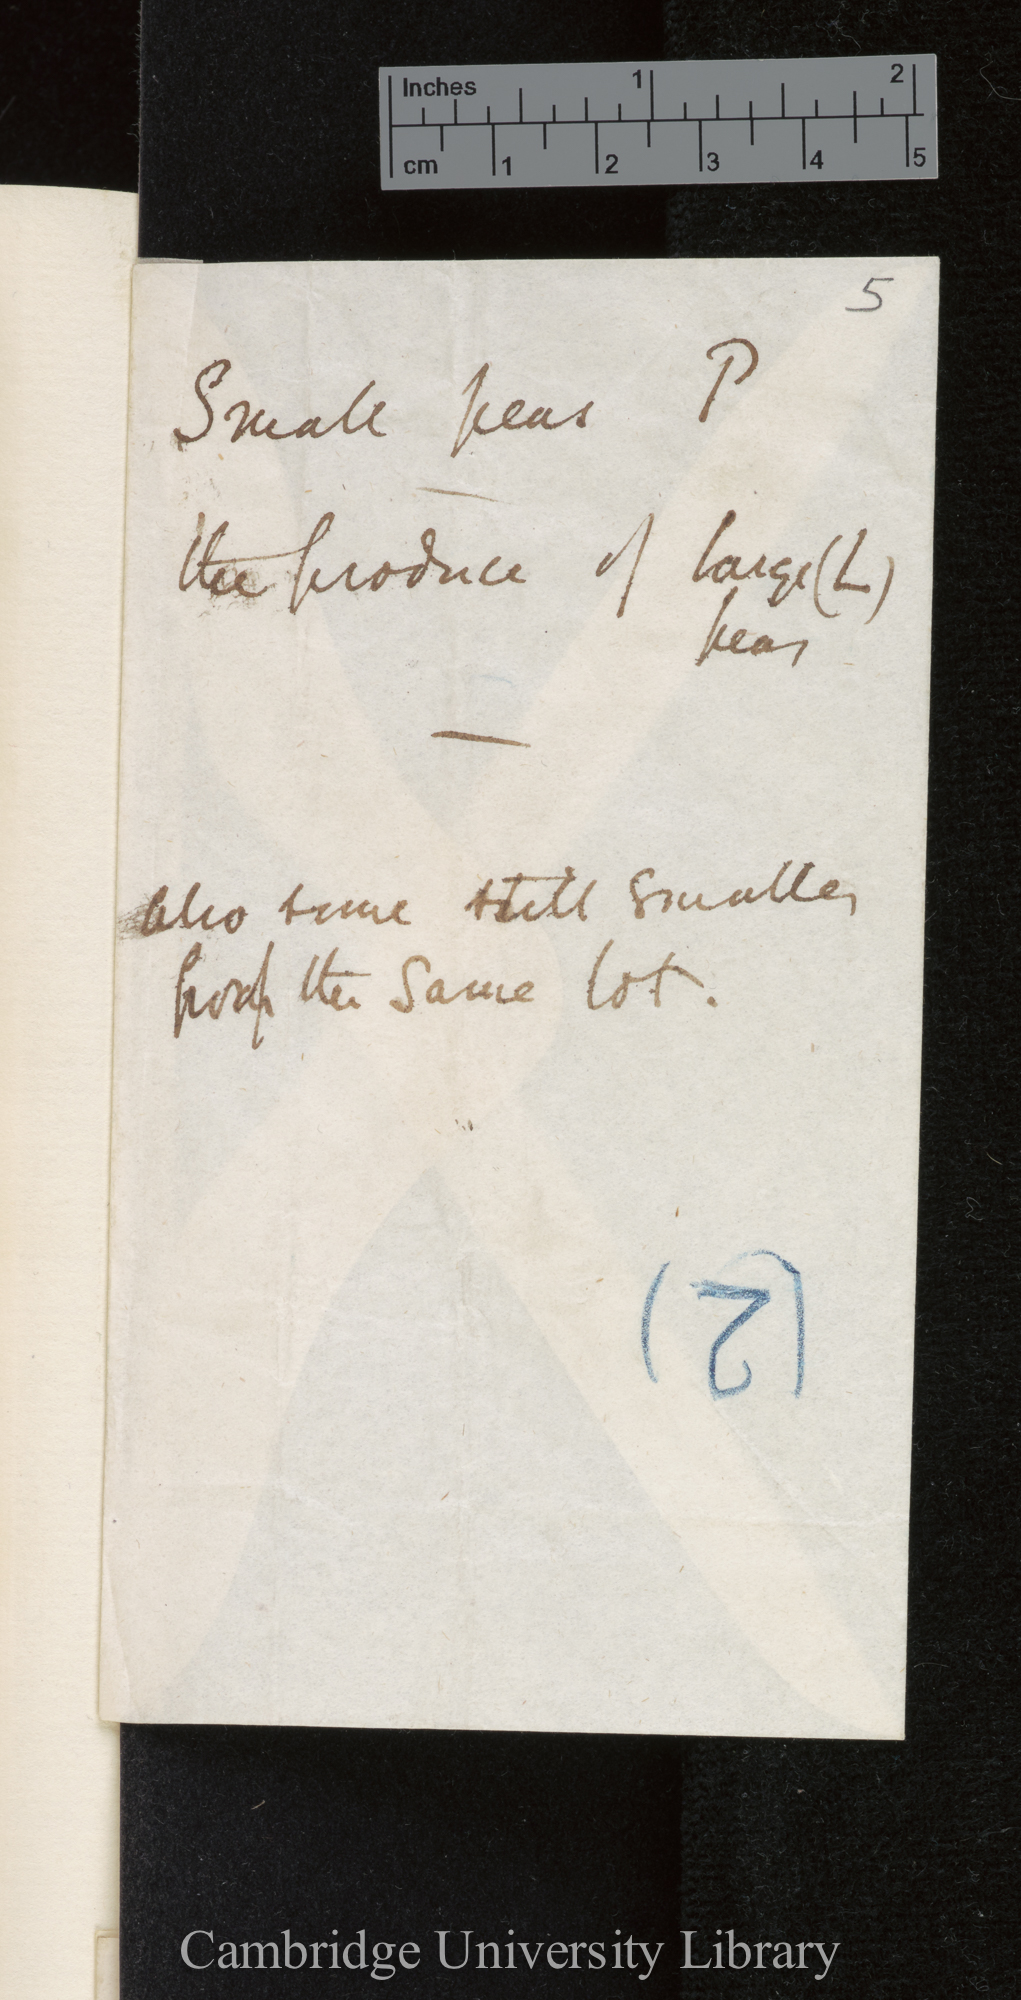 Inches 1 2
cm 1 2 3 4 5
5
Small peas P
the produce of large (L)
peas
also some still smaller
from the same lot.
(2)
Cambridge University Library